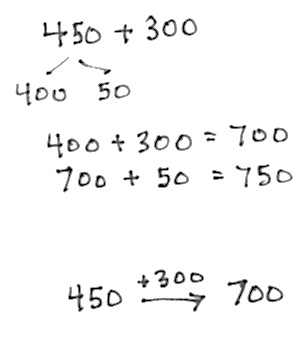 450 + 300
400 50
400 + 300 = 700
700 + 50 = 750
+300
450 → 700